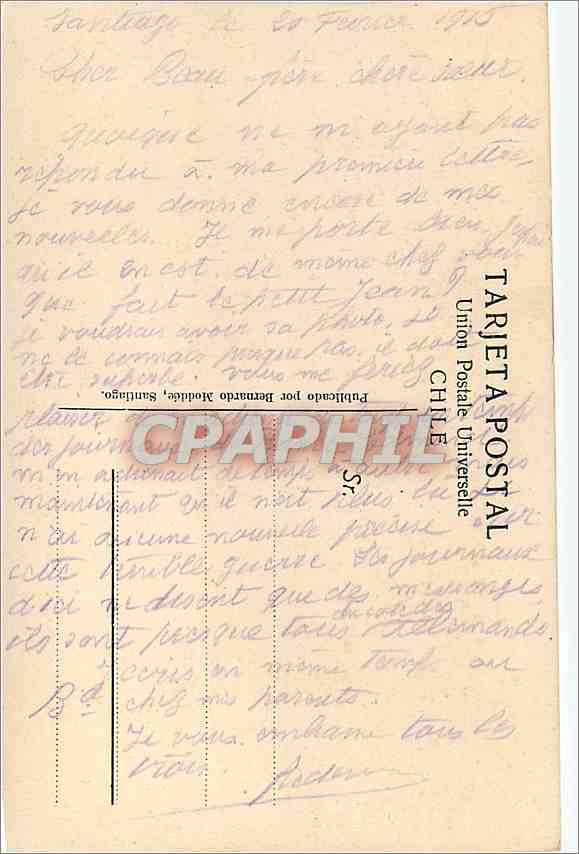 Santiago le 20 Fevrier 1915
Cher Beau-père chère sœur.
Quoique ne m'ayant pas
répondu à ma première lettre,
je vous donne encore de mes
nouvelles. Je me porte bien, j'espère
qu'il en est de même chez vous
que fait le petit Jean?
je voudrais avoir sa photo, je
ne le connais presque pas, il doit
être superbe. Vous me feriez
plaisir
des journaux
m'en adressait de temps
maintenant qu'il n'est plus
n'ai aucune nouvelle précise
cette terrible guerre. Les journaux
d'ici ne disent que des mensonges
ils sont presque tous du côté des Allemands
écris en même temps au
Bd chez mes parents.
Je vous embrasse tous les
trois.
TARJETA POSTAL
Union Postale Universelle
CHILE
Sr.
Publicado por Bernardo Moddée, Santiago.
CPAPHIL